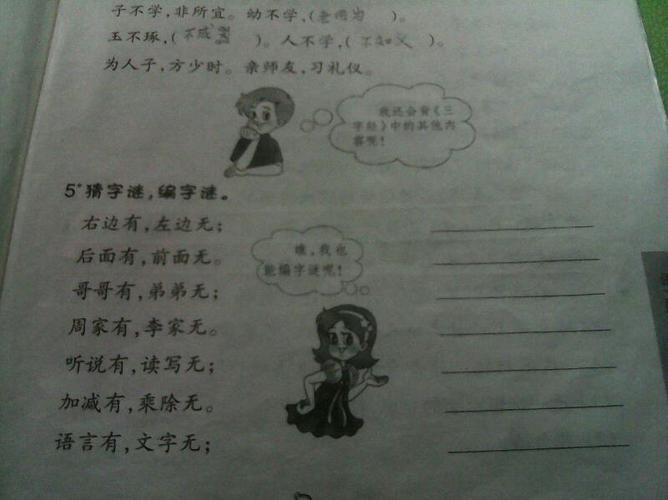 子不学,非所宜。幼不学,(老何为)。
玉不琢,(不成器)。人不学,(不知义)。
为人子,方少时。亲师友,习礼仪。
我还会背《三
字经》中的其他内
容呢!
5*猜字谜,编字谜。
右边有,左边无;
后面有,前面无。
哥哥有,弟弟无;
周家有,李家无。
听说有,读写无;
加减有,乘除无。
语言有,文字无;
瞧,我也
能编字谜呢!